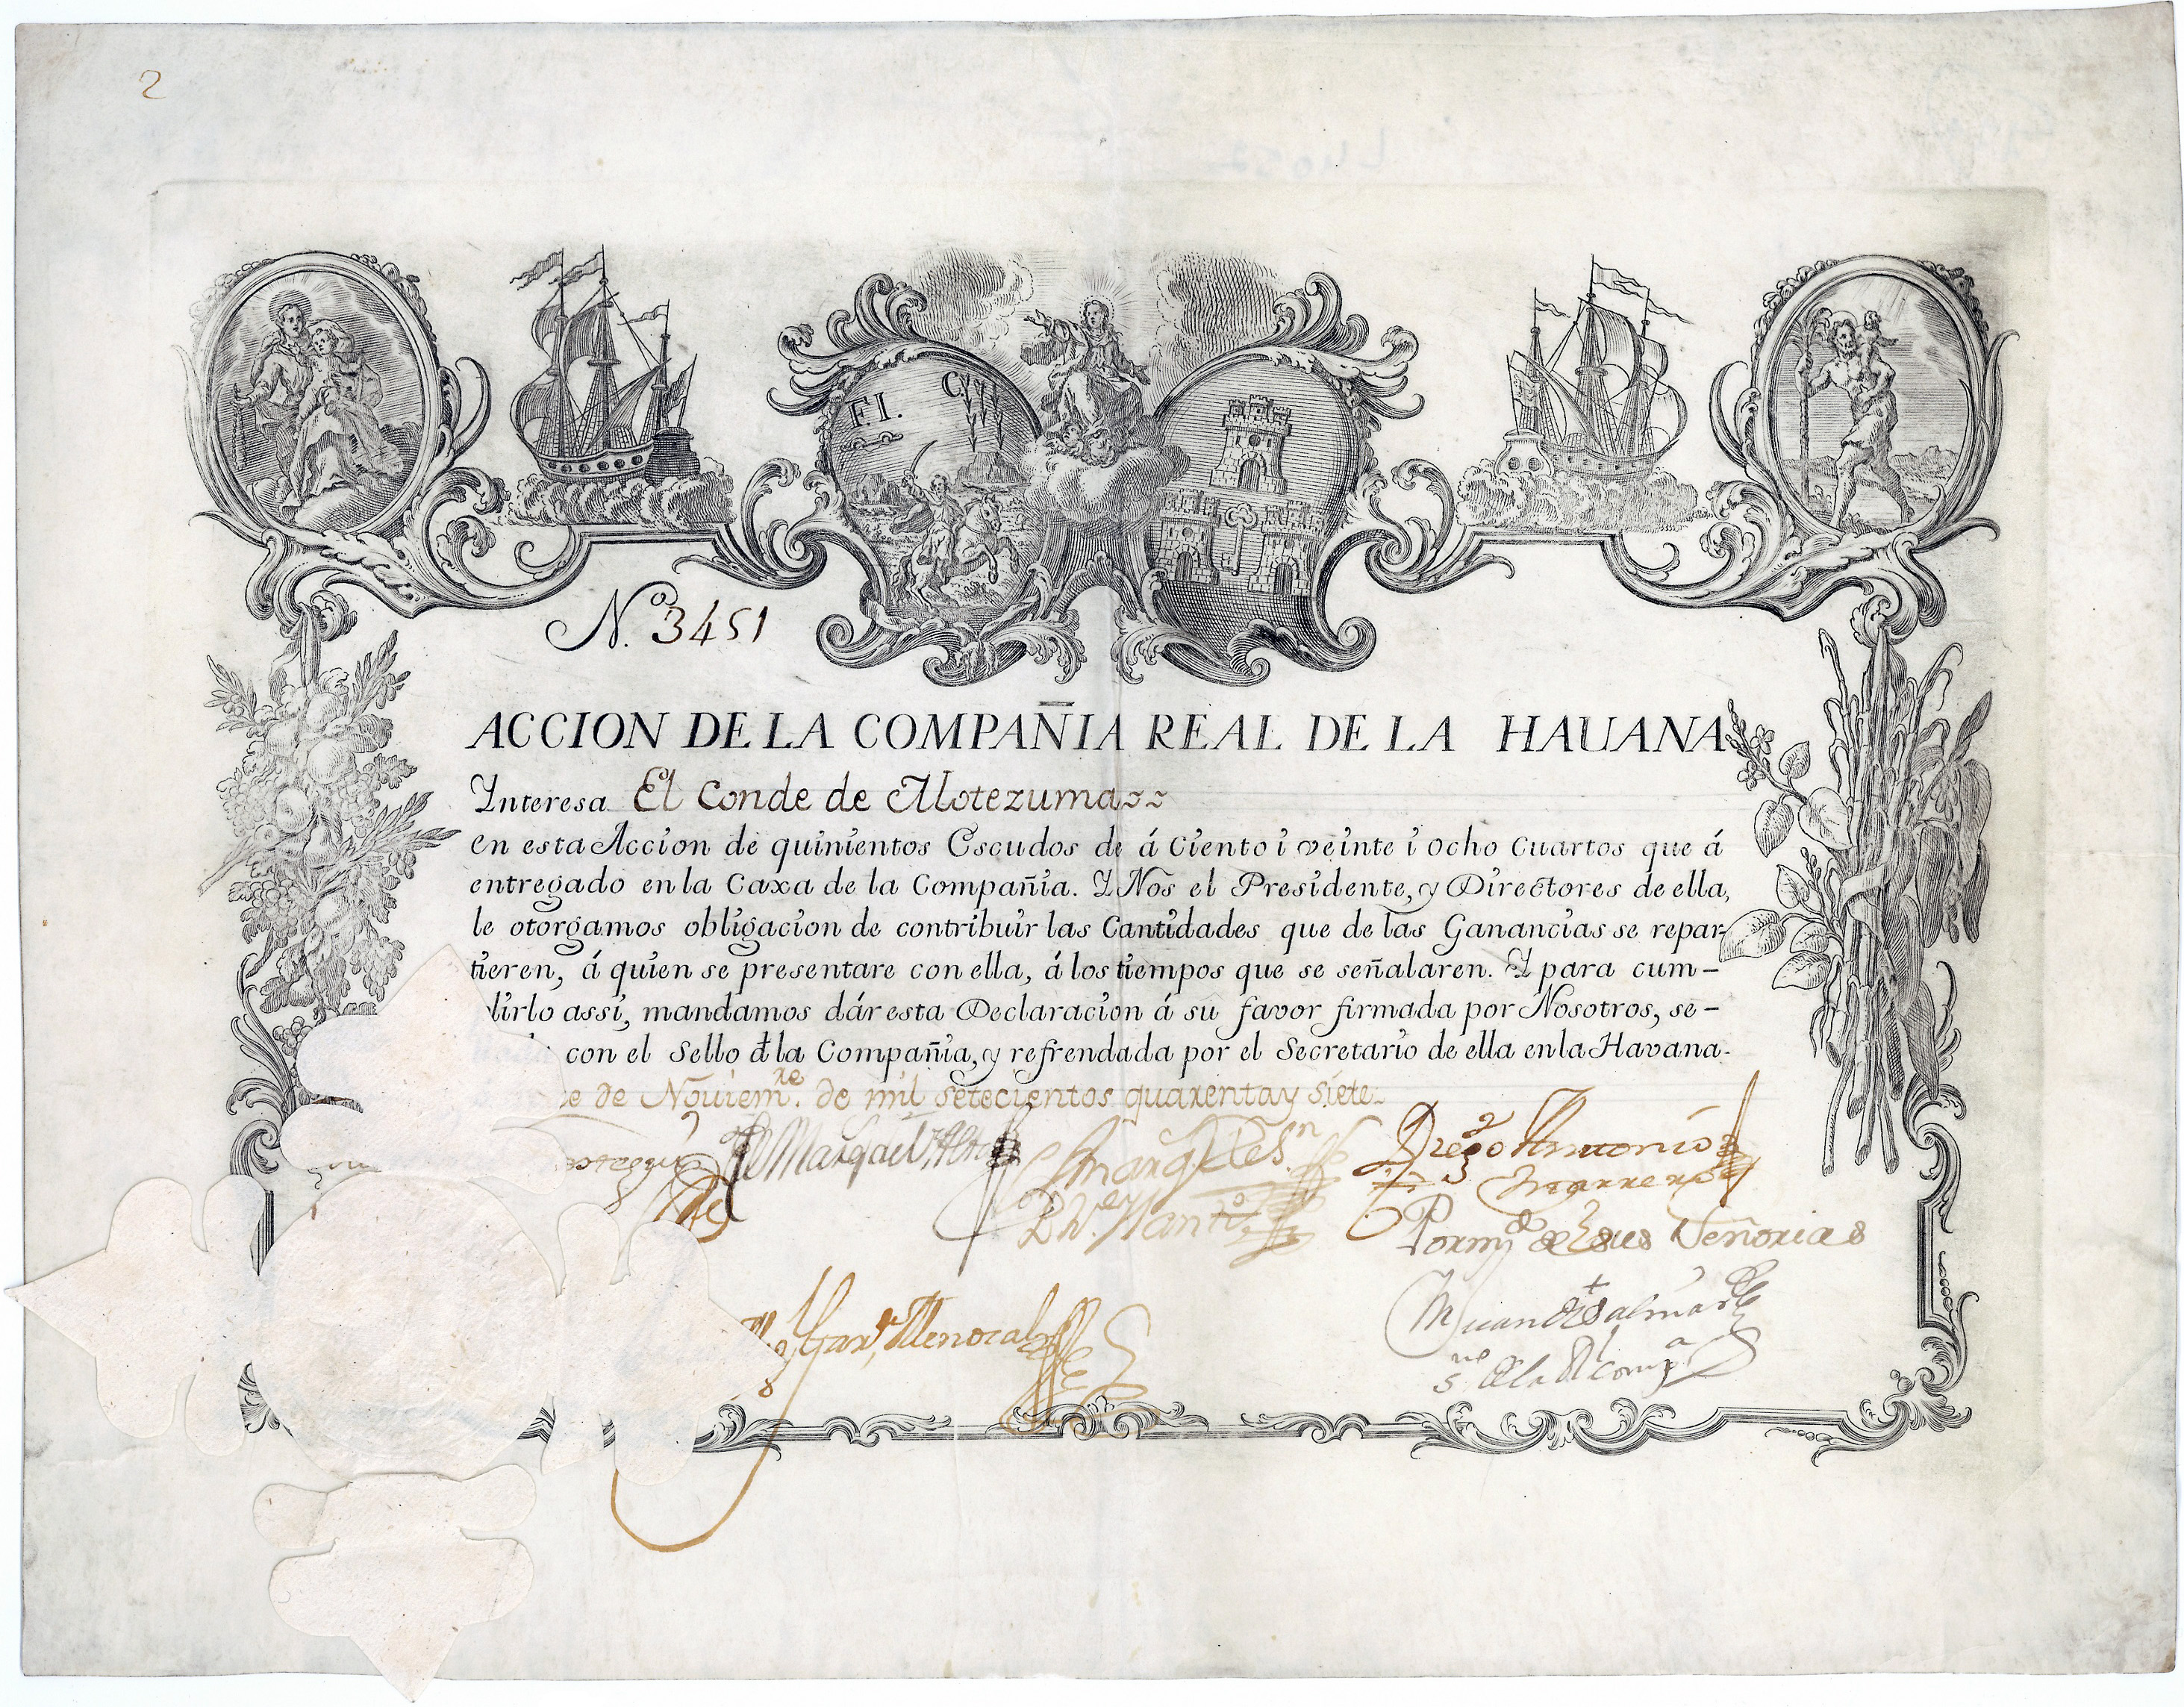 2
F.I.
C.
N.º 3451
ACCION DE LA COMPAÑIA REAL DE LA HAUANA
Interesa El Conde de Motezuma
en esta Accion de quinientos Escudos de á Ciento i veinte i ocho Cuartos que á
entregado en la Caxa de la Compañia. Y Nos el Presidente, y Directores de ella,
le otorgamos obligacion de contribuir las Cantidades que de las Ganancias se repar-
tieren, á quien se presentare con ella, á los tiempos que se señalaren. Y para cum-
lirlo assi, mandamos dár esta Declaracion á su favor firmada por Nosotros, se-
con el Sello dla Compañia, y refrendada por el Secretario de ella en la Havana.
e de Nouiemre. de mil setecientos quarenta y siete.
Diego Antonio
Marrero
Por md de sus Señorias
Menocal